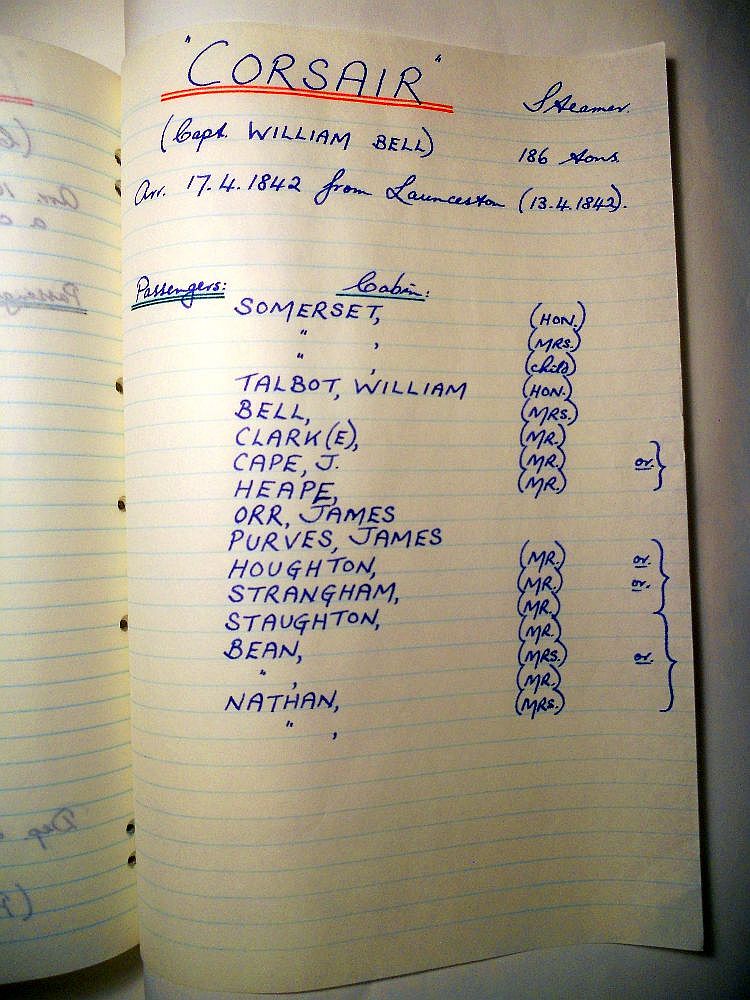 "CORSAIR" Steamer.
(Capt. WILLIAM BELL) 186 tons
Arr. 17.4.1842 from Launceston (13.4.1842).
Passengers: Cabin:
SOMERSET, (HON.)
" , (MRS.)
" , (child)
TALBOT, WILLIAM (HON.)
BELL, (MRS.)
CLARK(E), (MR.)
CAPE, J. (MR.) or.
HEAPE, (MR.)
ORR, JAMES
PURVES, JAMES
HOUGHTON, (MR.) or.
STRANGHAM, (MR.) or.
STAUGHTON, (MR.)
BEAN, (MR.)
" , (MRS.) or.
NATHAN, (MR.)
" , (MRS.)
Dep.